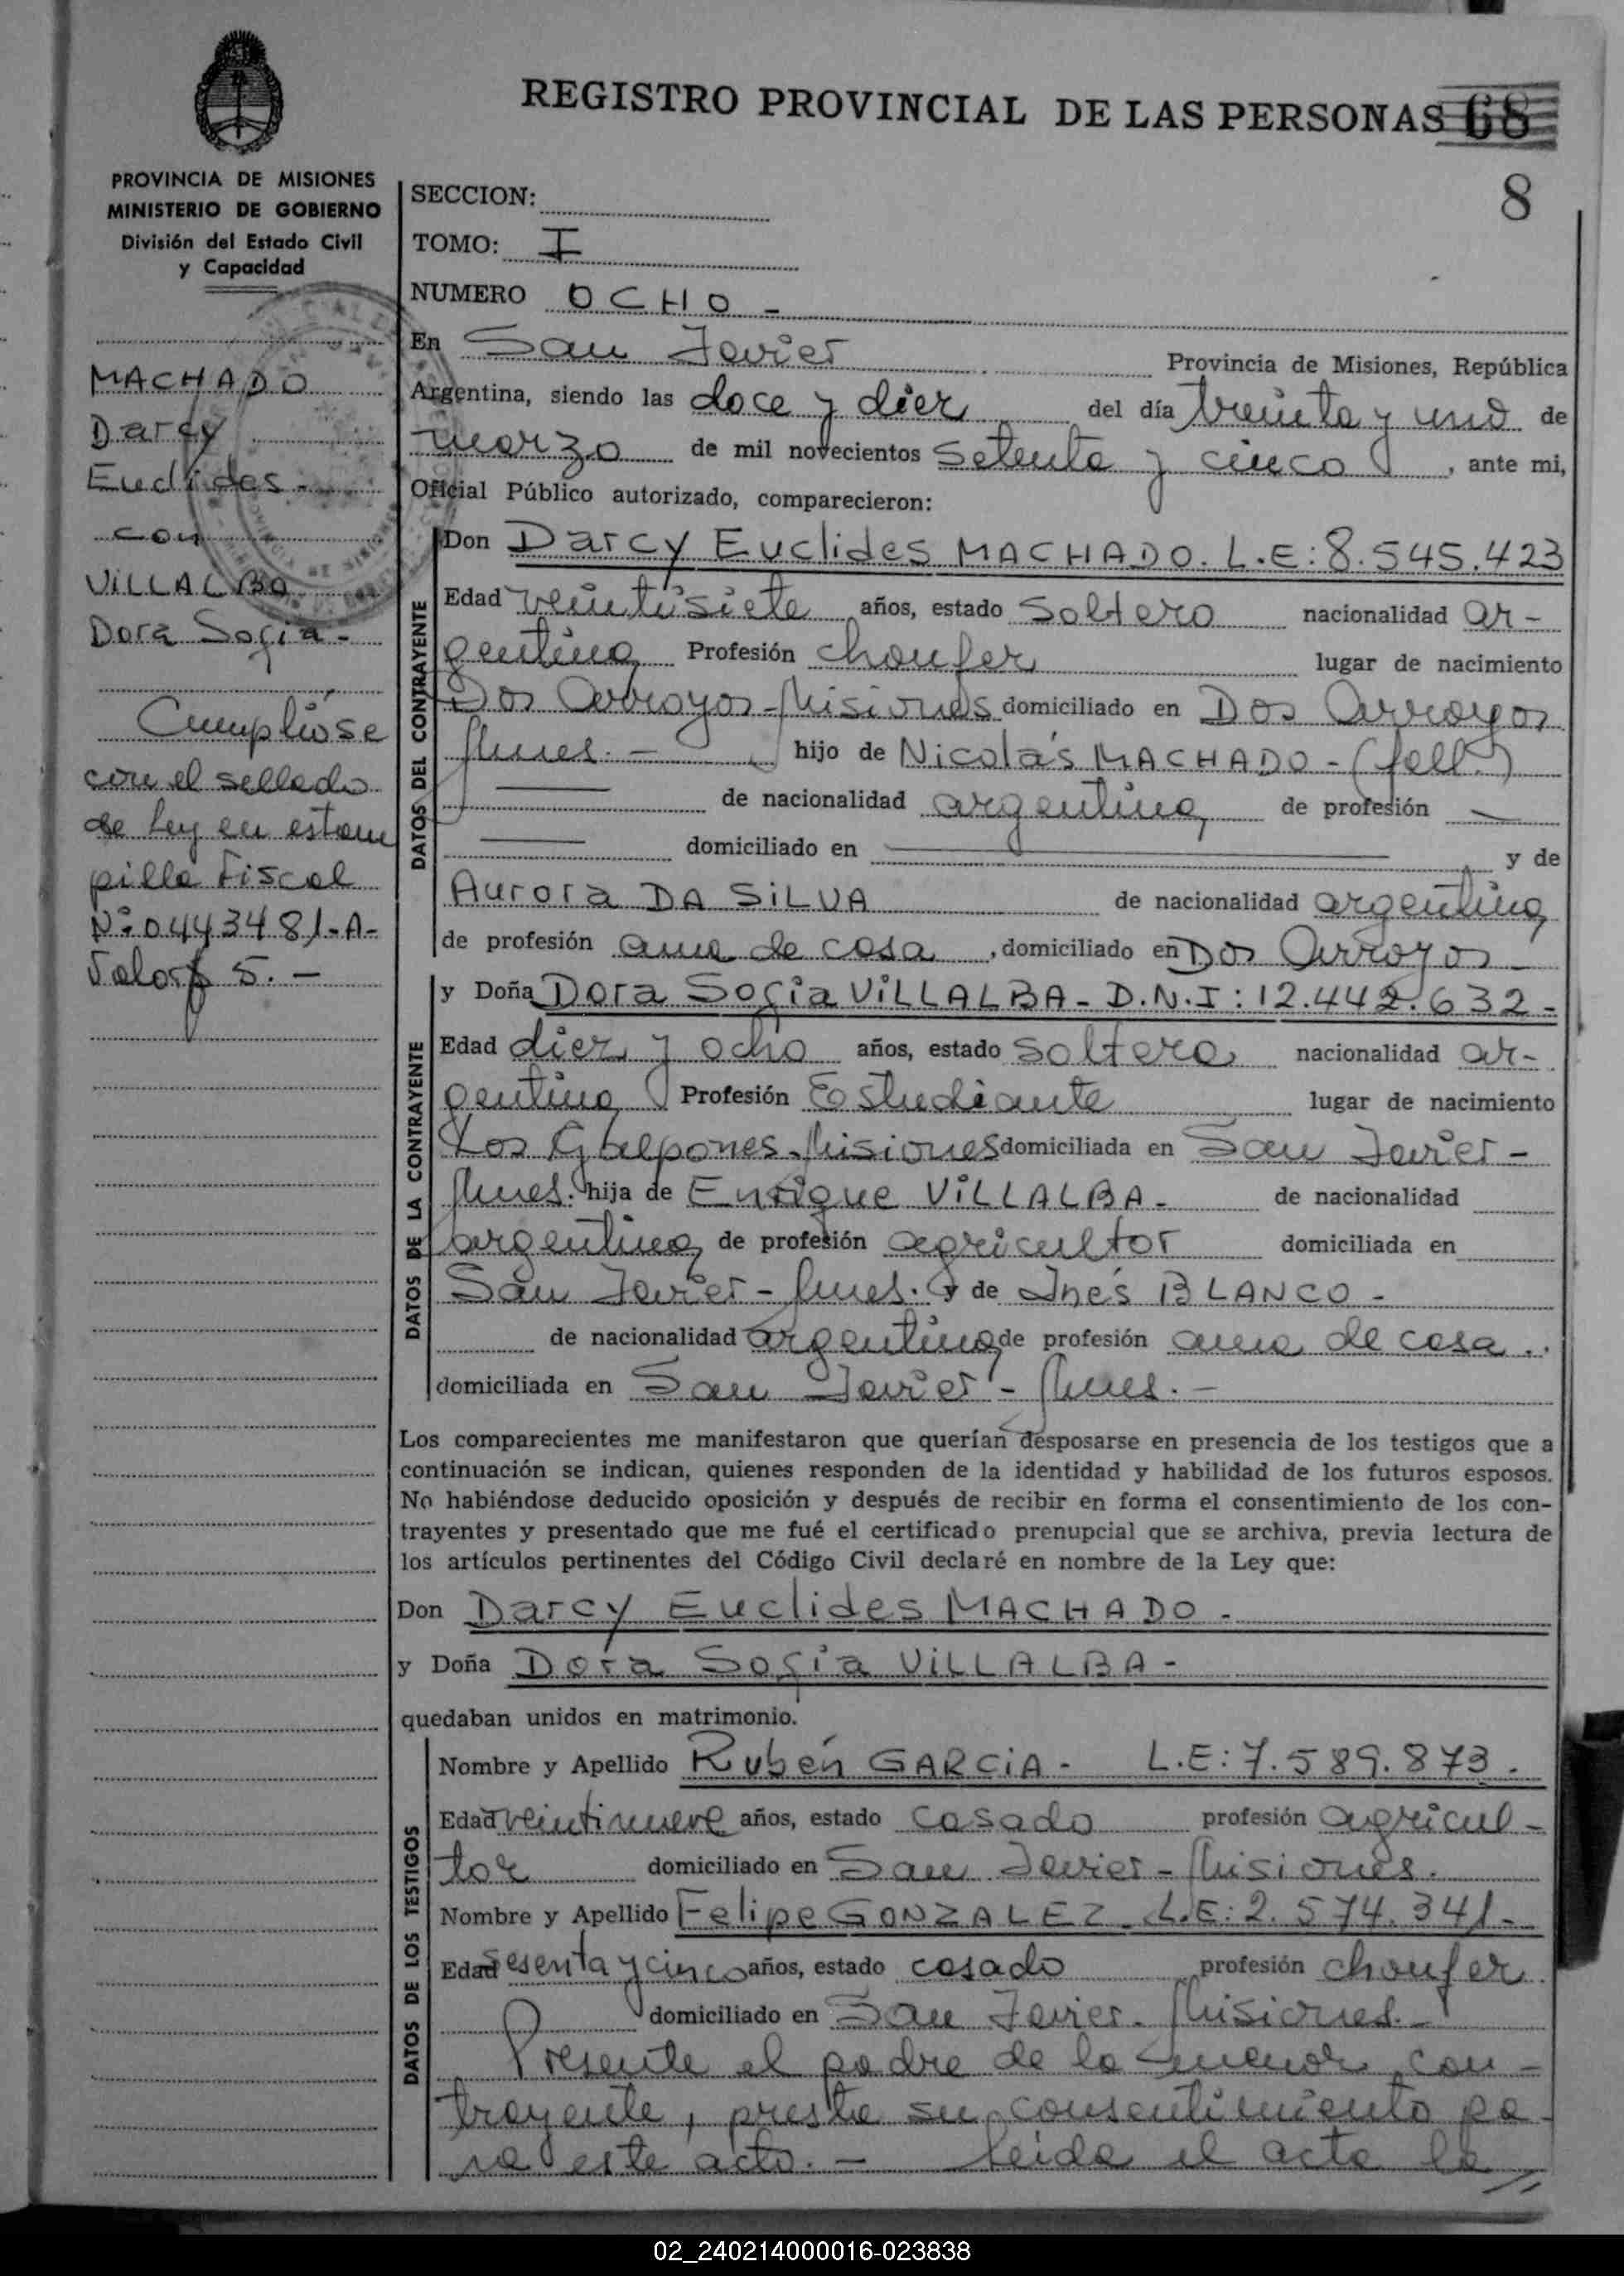 REGISTRO PROVINCIAL DE LAS PERSONAS 68
8
PROVINCIA DE MISIONES
MINISTERIO DE GOBIERNO
División del Estado Civil
y Capacidad
MACHADO
Darcy
Euclides -
con
VILLALBA
Dora Sofia -
Cumplióse
con el sellado
de Ley en estam
pilla Fiscal
Nº 0443481-A-
Valor $ 5. -
SECCION:
TOMO: I
NUMERO OCHO -
En San Javier Provincia de Misiones, República
Argentina, siendo las doce y diez del día treinta y uno de
marzo de mil novecientos setenta y cinco, ante mi,
Oficial Público autorizado, comparecieron:
DATOS DEL CONTRAYENTE
Don Darcy Euclides MACHADO. L.E: 8.545.423
Edad veintisiete años, estado soltero nacionalidad ar-
gentina Profesión choufer lugar de nacimiento
Dos Arroyos - Misiones domiciliado en Dos Arroyos
Mnes. - hijo de Nicolás MACHADO - (fall.)
de nacionalidad argentina de profesión —
domiciliado en — y de
Aurora DA SILVA de nacionalidad argentina
de profesión ama de casa, domiciliado en Dos Arroyos
DATOS DE LA CONTRAYENTE
y Doña Dora Sofia VILLALBA - D.N.I: 12.442.632 -
Edad diez y ocho años, estado soltera nacionalidad ar-
gentina Profesión Estudiante lugar de nacimiento
Los Galpones - Misiones domiciliada en San Javier -
Mnes. hija de Enrique VILLALBA - de nacionalidad
argentina de profesión agricultor domiciliada en
San Javier - Mnes. y de Inés BLANCO -
de nacionalidad argentina de profesión ama de casa .
domiciliada en San Javier - Mnes. -
Los comparecientes me manifestaron que querían desposarse en presencia de los testigos que a
continuación se indican, quienes responden de la identidad y habilidad de los futuros esposos.
No habiéndose deducido oposición y después de recibir en forma el consentimiento de los con-
trayentes y presentado que me fué el certificado prenupcial que se archiva, previa lectura de
los artículos pertinentes del Código Civil declaré en nombre de la Ley que:
Don Darcy Euclides MACHADO -
y Doña Dora Sofia VILLALBA -
quedaban unidos en matrimonio.
DATOS DE LOS TESTIGOS
Nombre y Apellido Rubén GARCIA - L.E: 7.589.873 -
Edad veintinueve años, estado casado profesión agricul-
tor domiciliado en San Javier - Misiones.
Nombre y Apellido Felipe GONZALEZ - L.E: 2.574.341 -
Edad sesenta y cinco años, estado casado profesión choufer
domiciliado en San Javier - Misiones. -
Presente el padre de la menor con-
trayente, presta su consentimiento pa-
ra este acto. - Leida el acta la
02_240214000016-023838